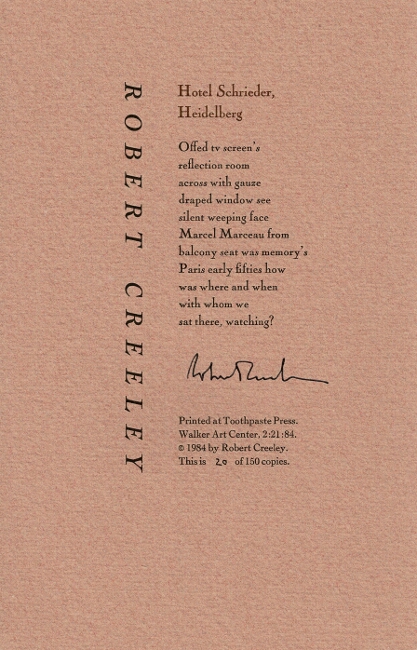 ROBERT CREELEY
Hotel Schrieder,
Heidelberg
Offed tv screen's
reflection room
across with gauze
draped window see
silent weeping face
Marcel Marceau from
balcony seat was memory's
Paris early fifties how
was where and when
with whom we
sat there, watching?
Robert Creeley
Printed at Toothpaste Press.
Walker Art Center. 2:21:84.
© 1984 by Robert Creeley.
This is 20 of 150 copies.